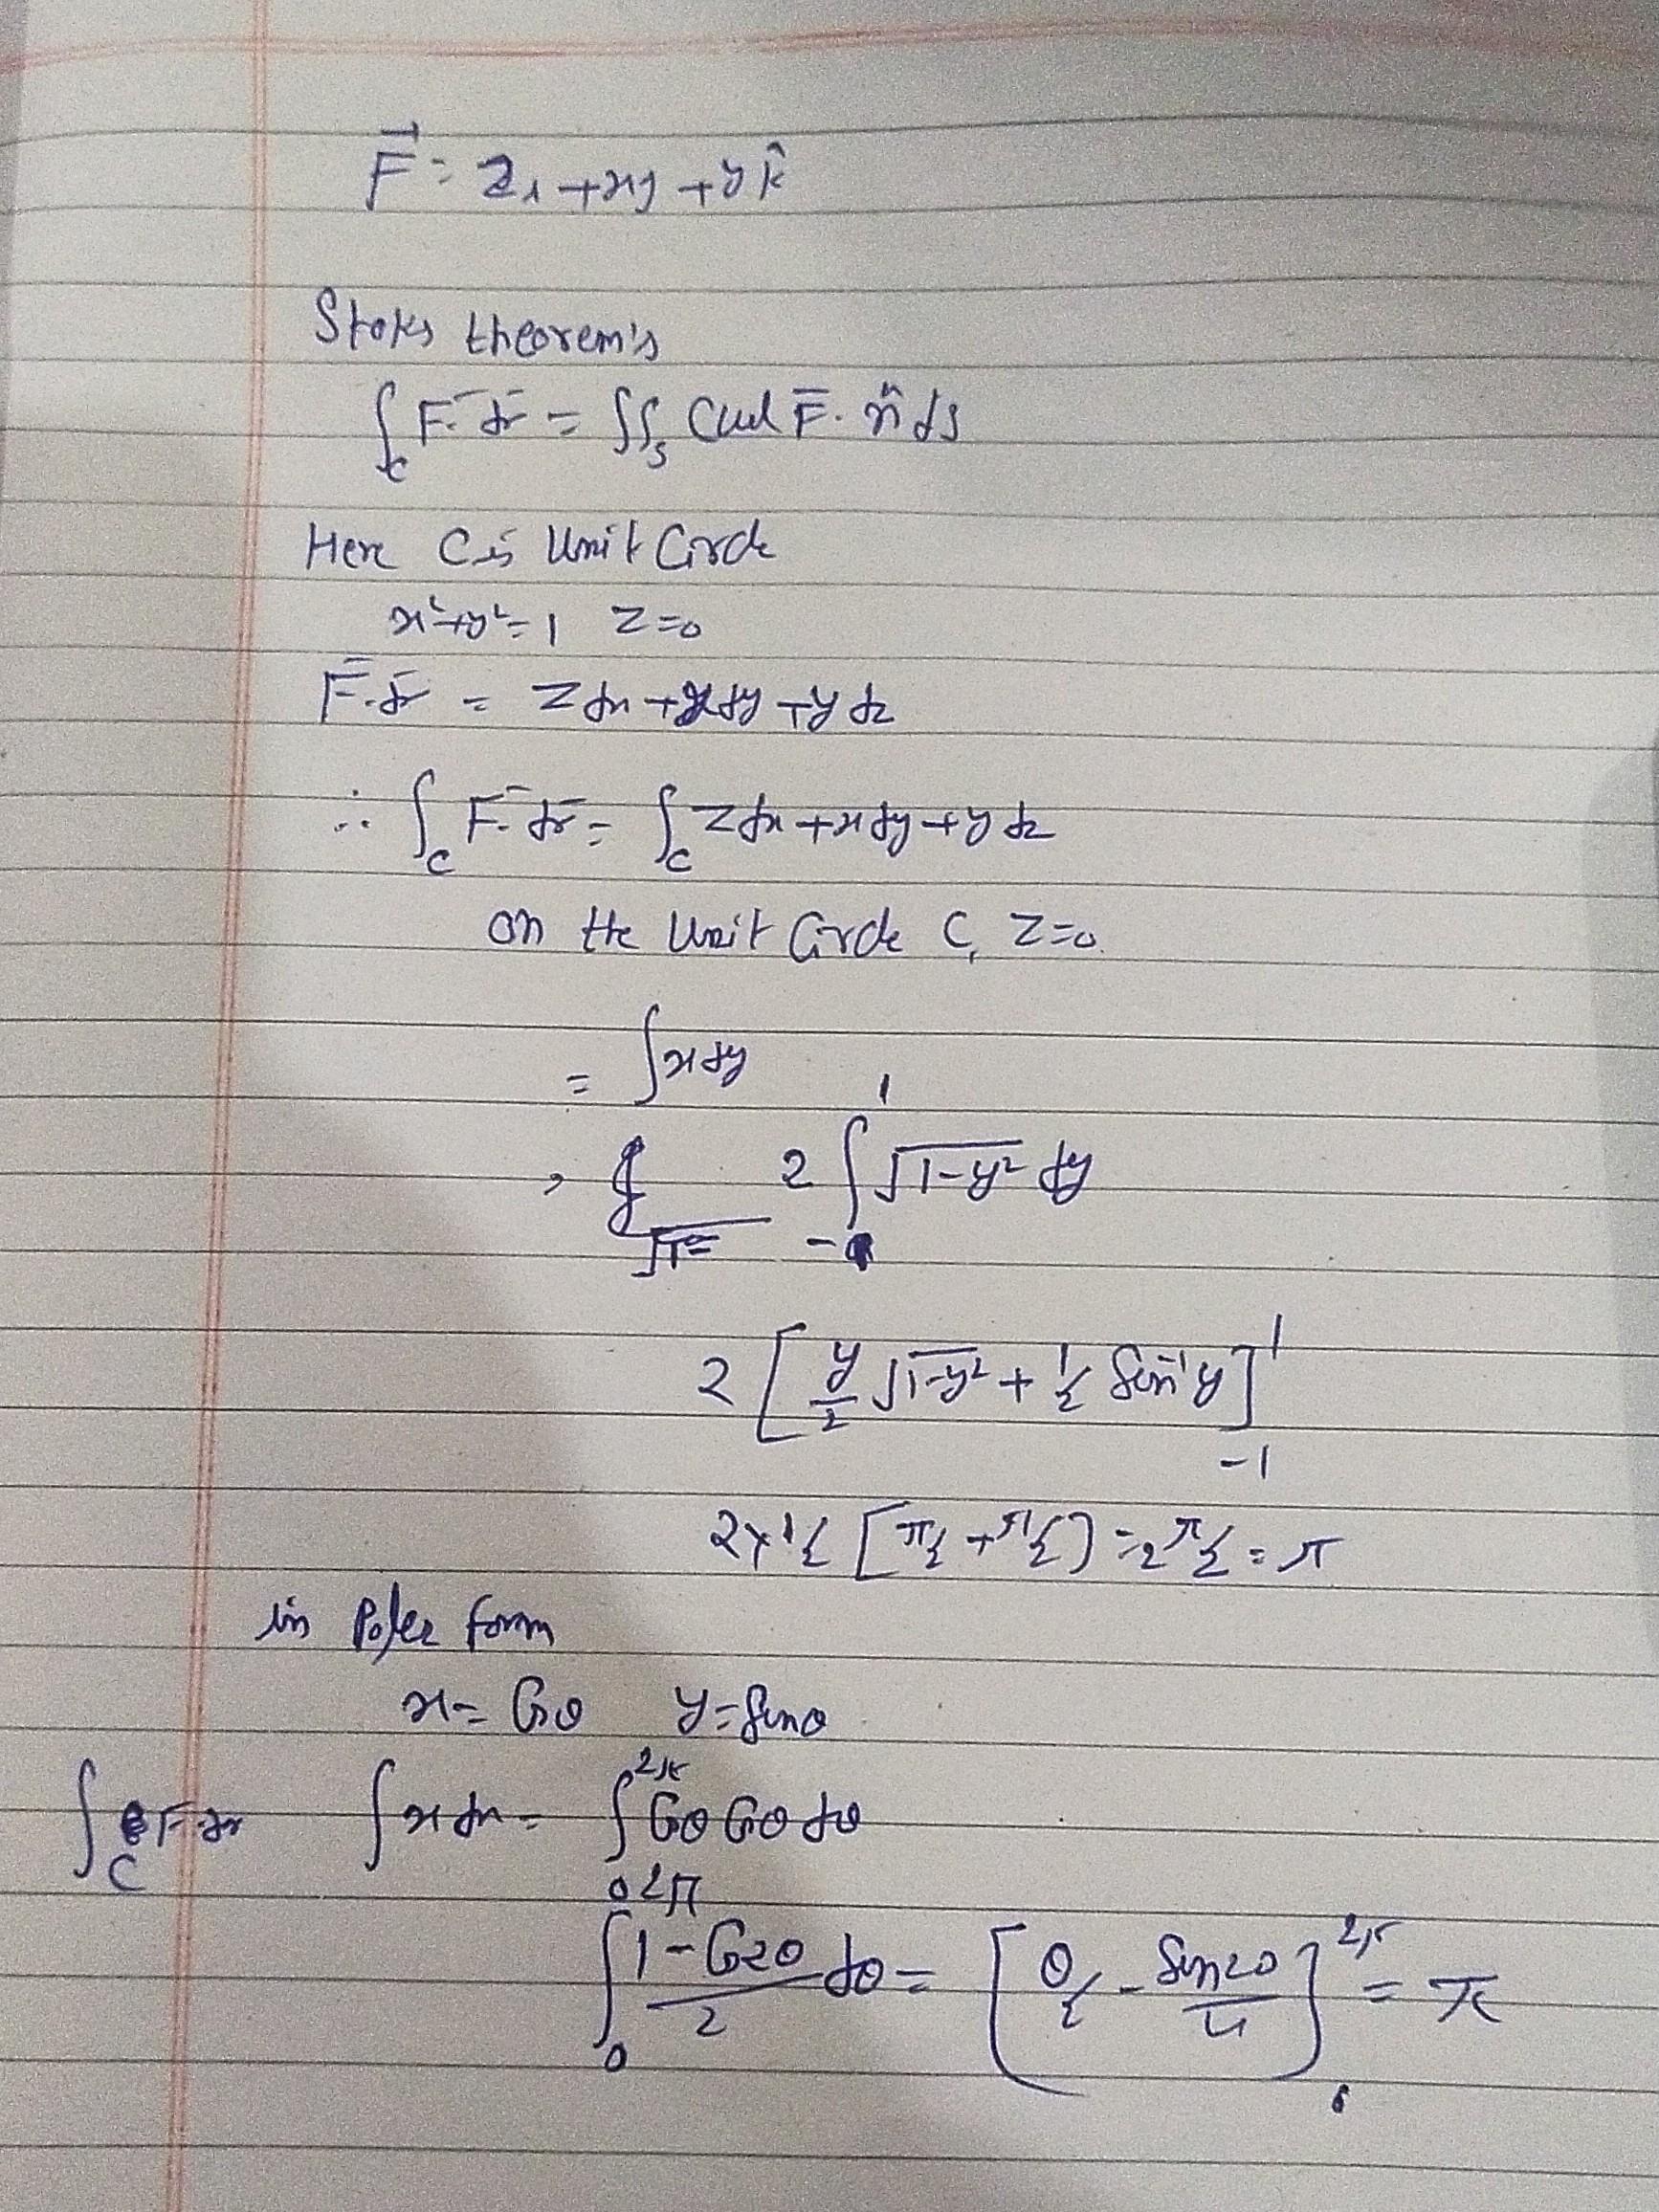 F⃗ = zi + xj + y k̂
Stoks theorem's
∫_C F̄.dr̄ = ∬_S Curl F̄. n̂ ds
Here C is Unit Circle
x²+y²=1 z=0
F̄.dr̄ = z dx + x dy + y dz
∴ ∫_C F̄.dr̄ = ∫_C z dx + x dy + y dz
on the Unit Circle C, z=0.
= ∫ x dy
, 2 ∫_{-1}^{1} √(1-y²) dy
2 [ y/2 √(1-y²) + 1/2 Sin⁻¹y ]_{-1}^{1}
2×1/2 [π/2 + π/2] = 2π/2 = π
in Poler form
x = Cosθ y = Sinθ
∫_C F.dr ∫ x dx = ∫_0^{2π} Cosθ Cosθ dθ
∫_0^{2π} (1 - Cos2θ)/2 dθ = [ θ/2 - Sin2θ/4 ]_0^{2π} = π